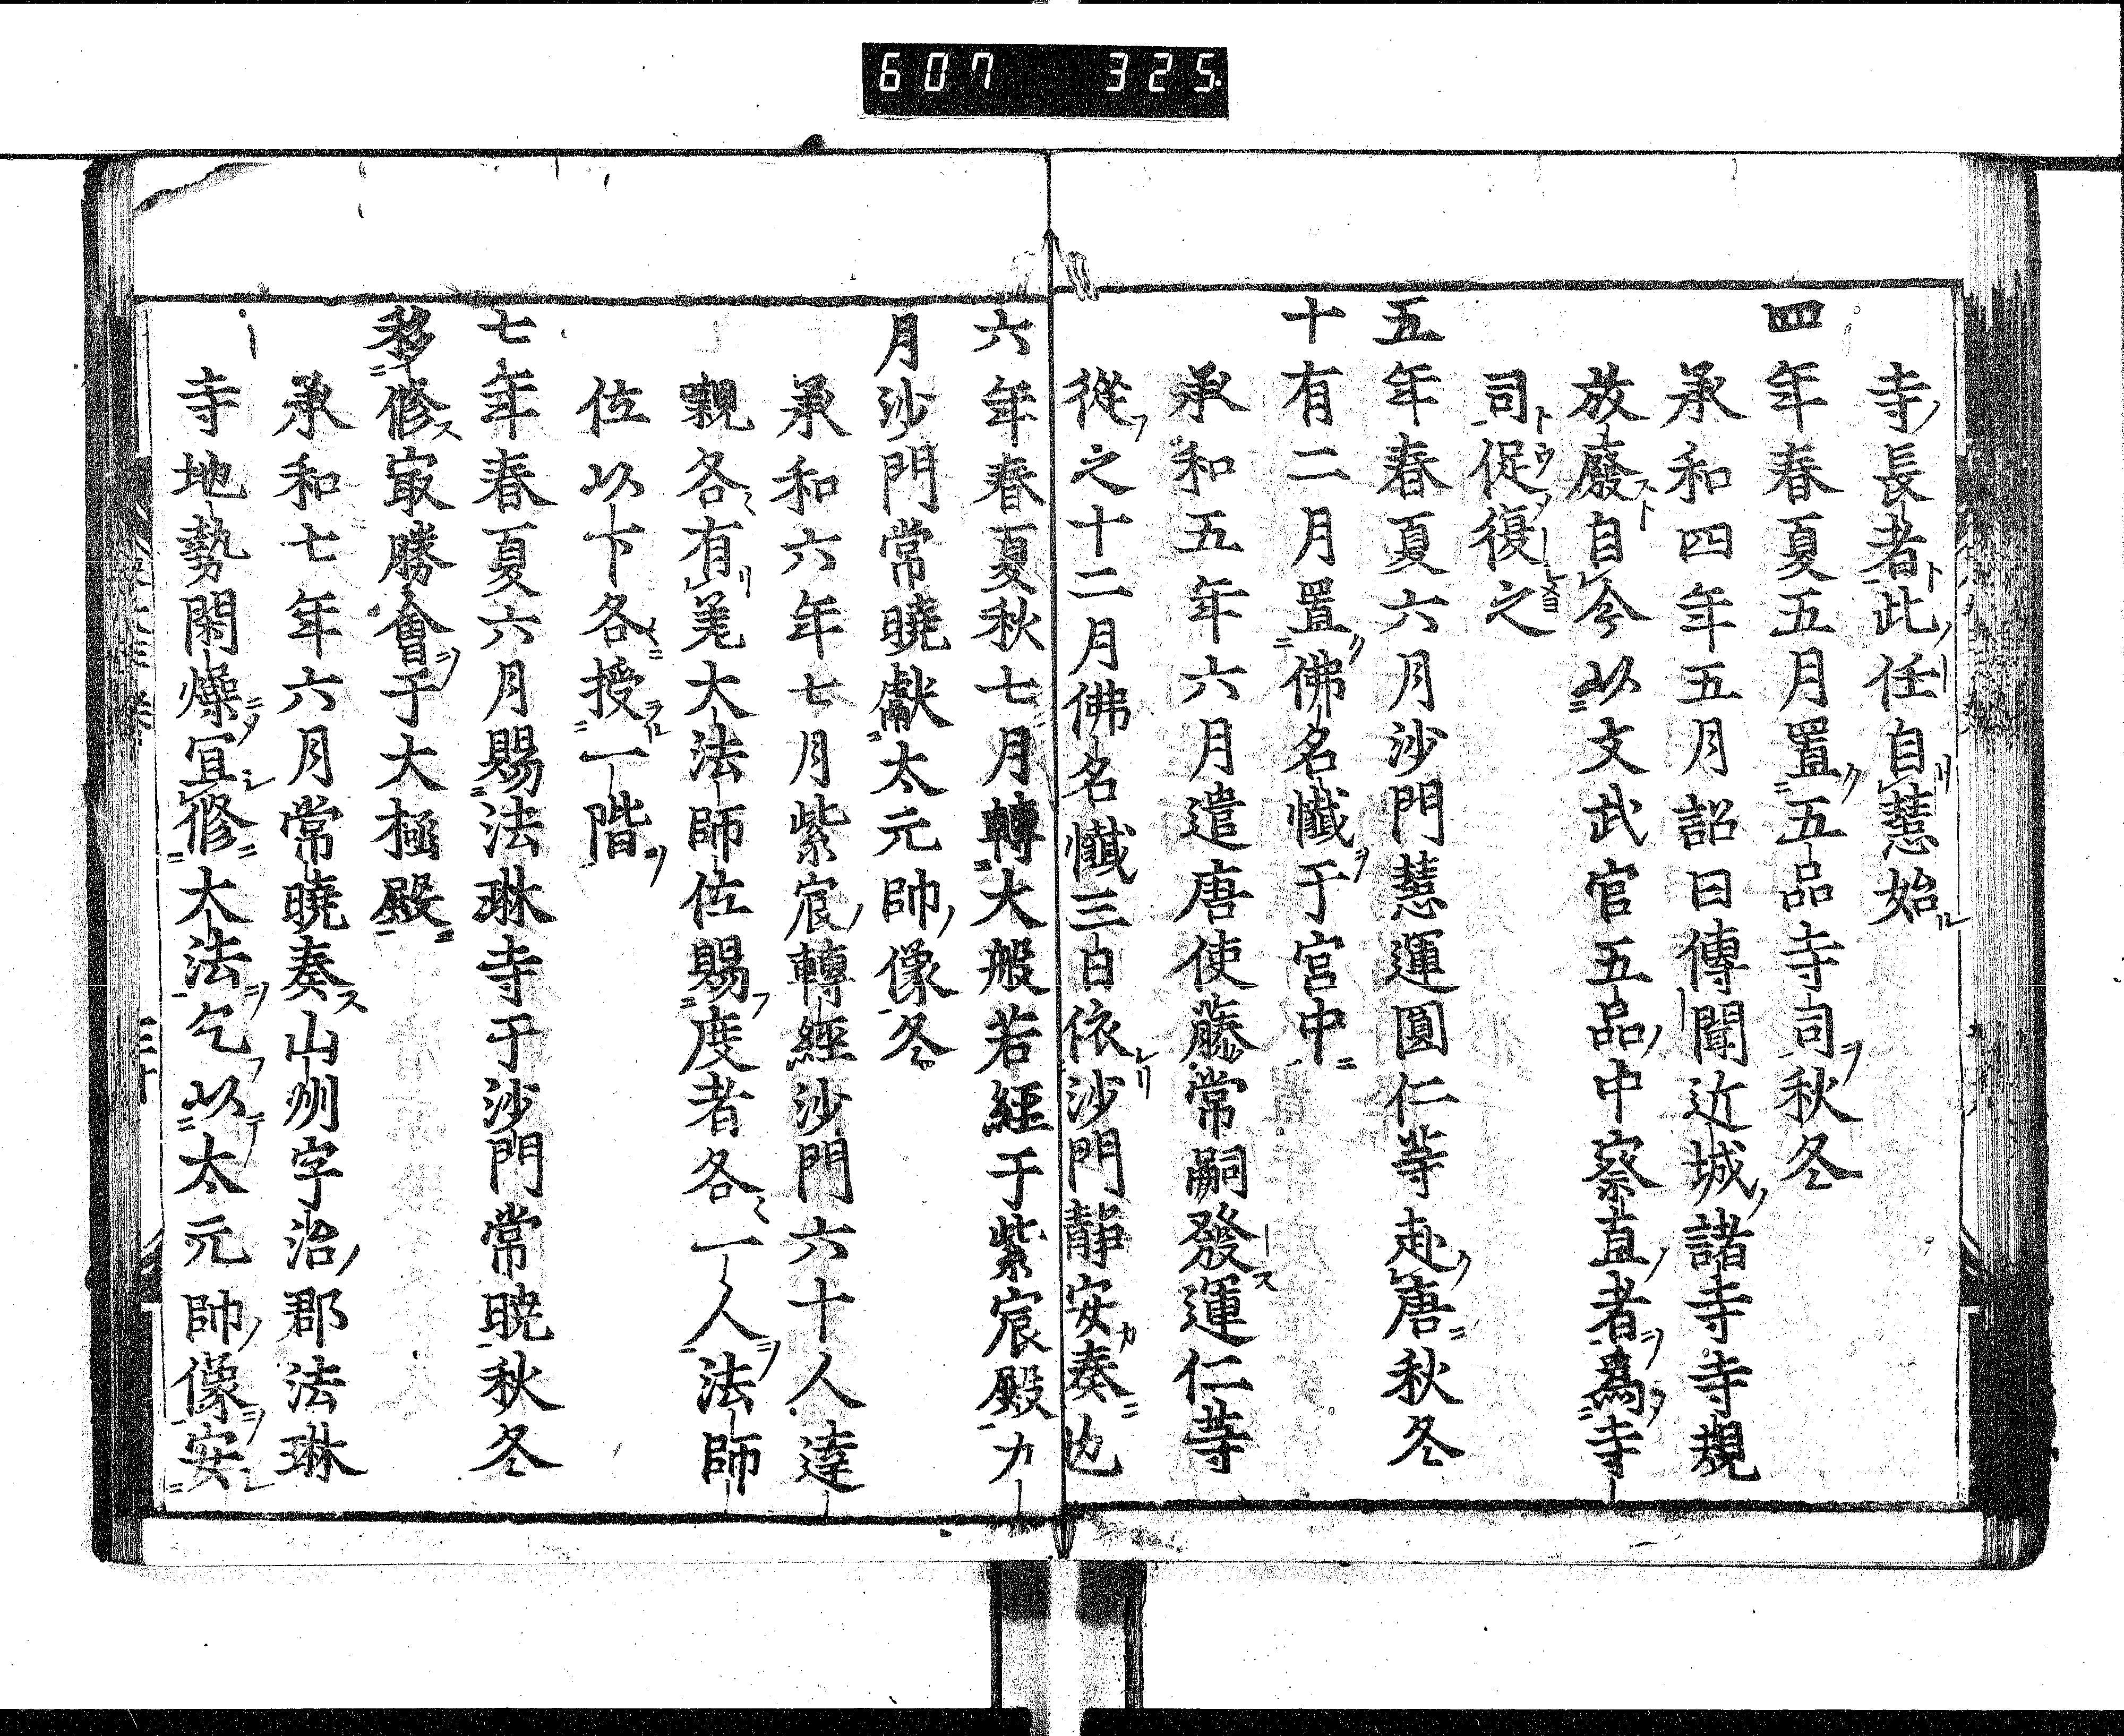 607 325
寺長者此任自慧始
四年春夏五月置五品寺司秋冬
承和四年五月詔曰傳聞近城諸寺寺規
放廢自今以文武官五品中察直者爲寺
司促復之
五年春夏六月沙門慧運圓仁等赴唐秋冬
十有二月置佛名懺于宮中
承和五年六月遣唐使藤常嗣發運仁等
從之十二月佛名懺三日依沙門靜安奏也
六年春夏秋七月轉大般若經于紫宸殿九
月沙門常曉獻太元帥像冬
承和六年七月紫宸轉經沙門六十人達
親各有差大法師位賜度者各一人法師
位以下各授一階
七年春夏六月賜法琳寺于沙門常曉秋冬
移修寂勝會于大極殿
承和七年六月常曉奏山州宇治郡法琳
寺地勢閑燥宜修大法乞以太元帥像安